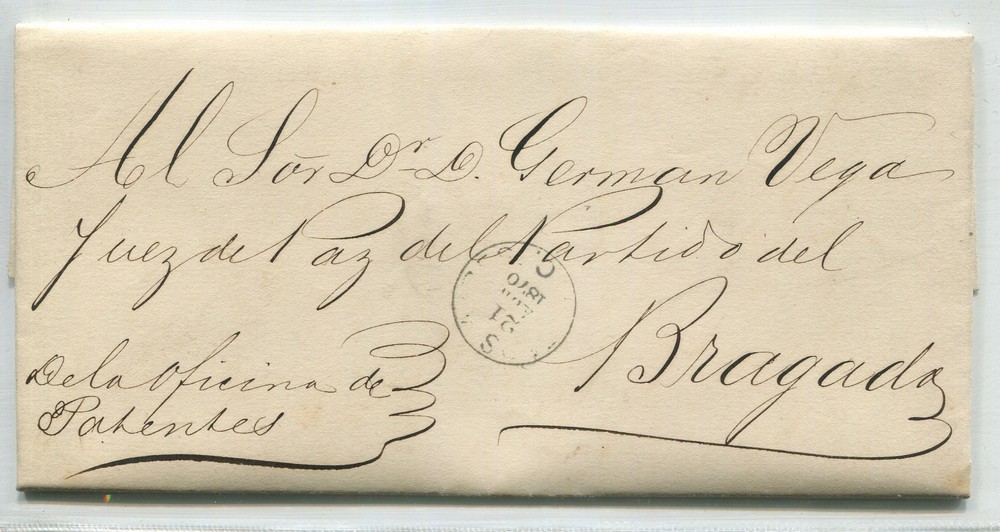 Al Sōr Dr. D. German Vega
Juez de Paz del Partido del
Bragado
De la Oficina de
Patentes
C
1870
21
S